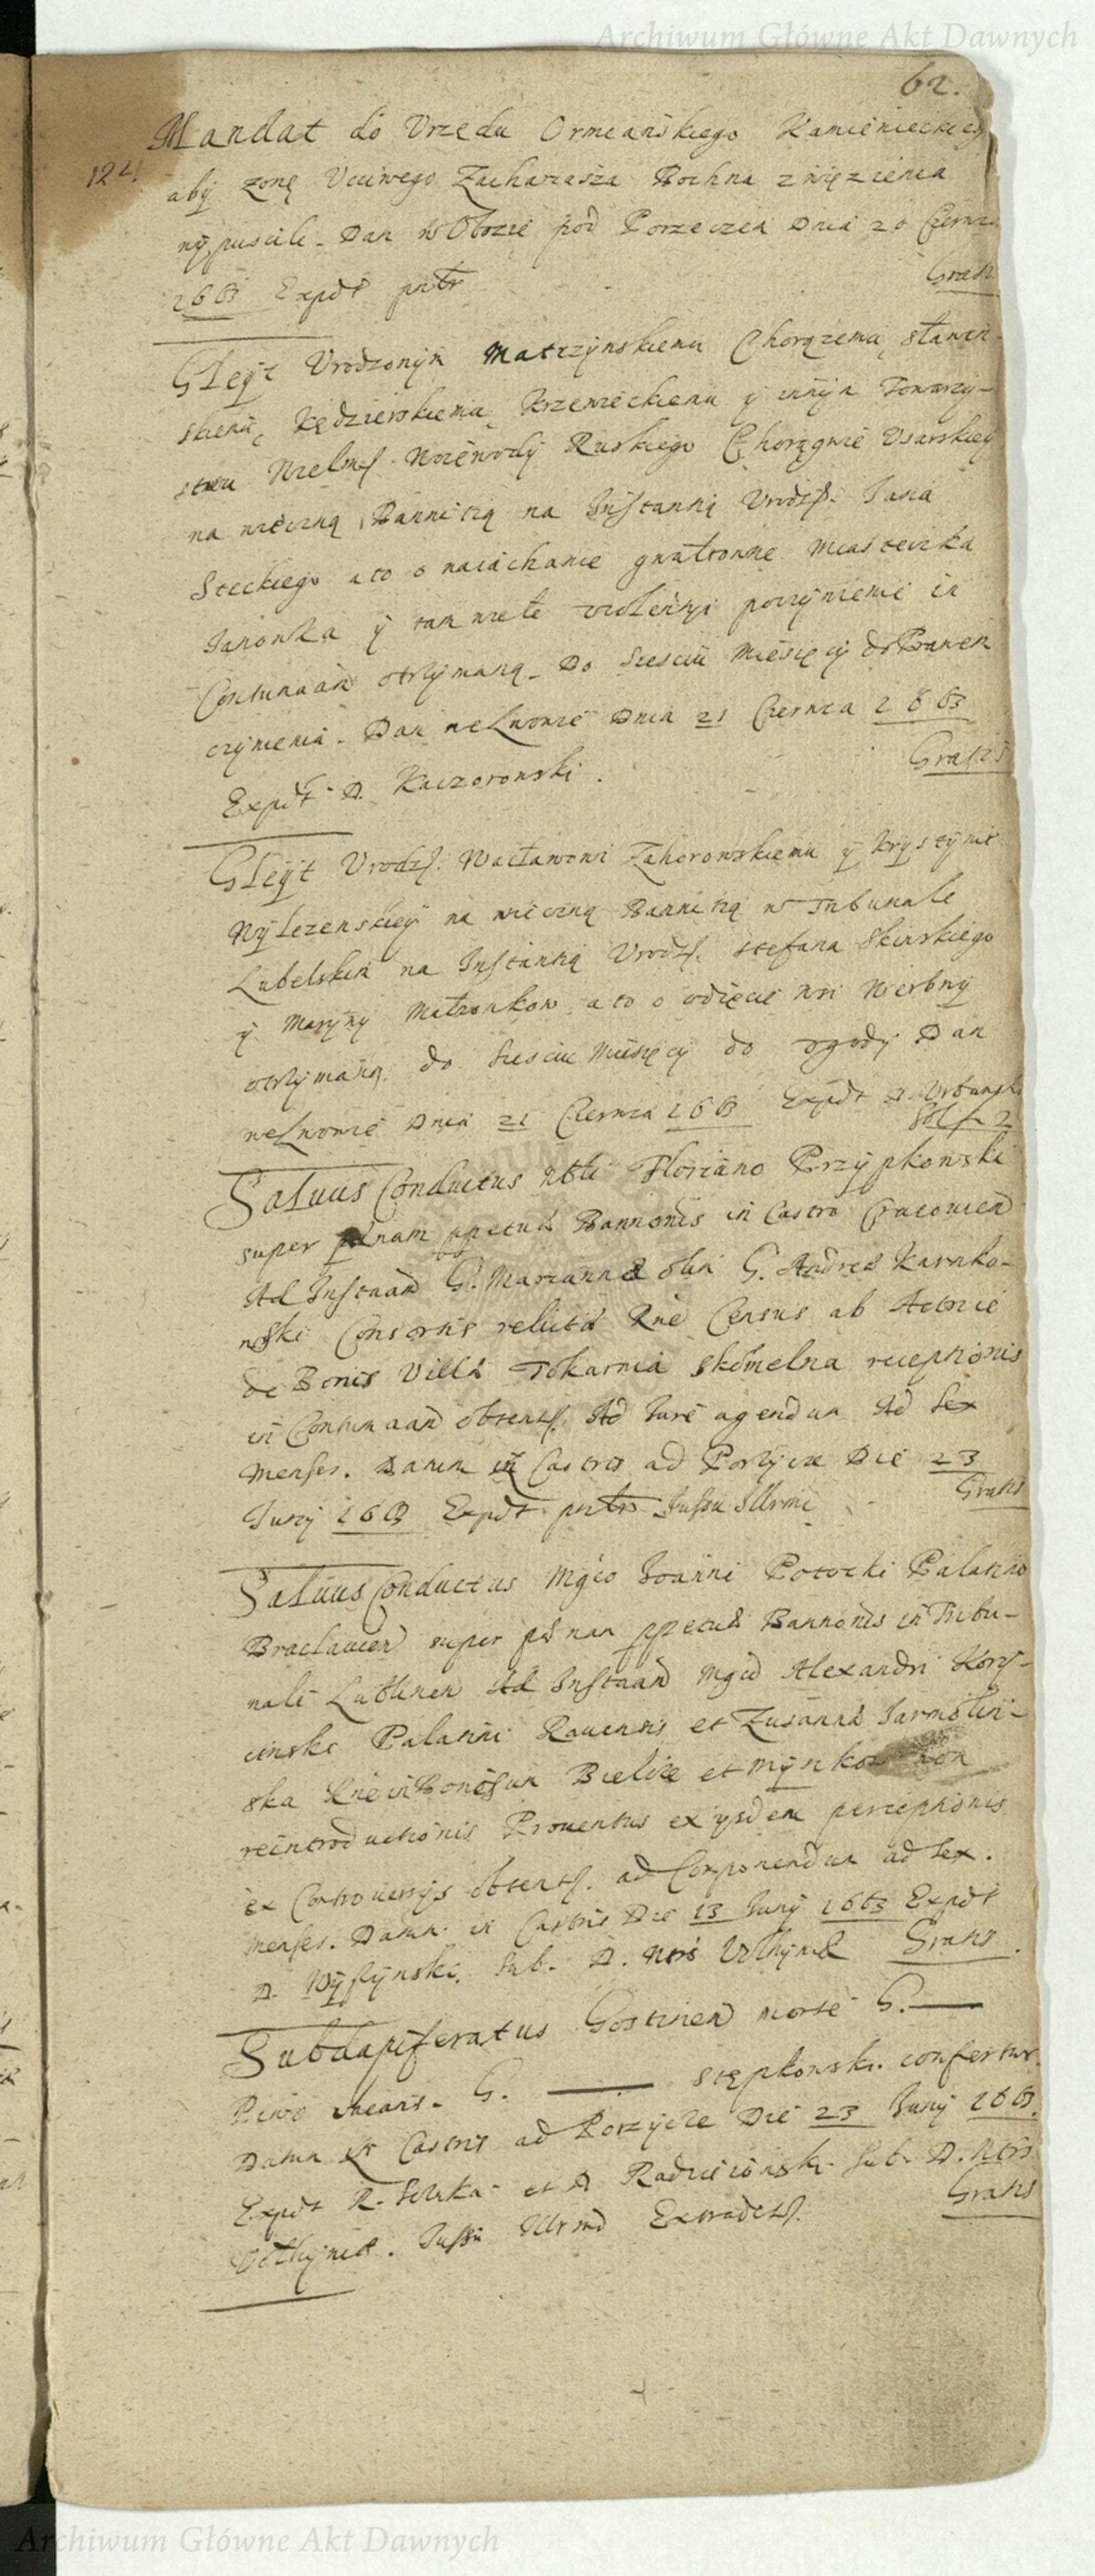 Archiwum Główne Akt Dawnych
62.
Mandat do Vrzędu Ormiańskiego Kamienieckieg
124
aby zonę Vcciwego Zachariasza Bochna z więzienia
wypuscili. Dan w Obozie pod Porzeczem Dnia 20 Czerwca
1663 Expdt pntr
Gratis
Gleyt Vrodzonym Matczynskiemu Chorązemu, Stawin-
skiemu, Kędzierskiemu, Krzemieckiemu y innym Towarzy-
stwu Wielmż. Woiewody Ruskiego Chorągwie Vsarskiey
na wieczną Bannitią na Instantią Vrodz. Jana
Steckiego a to o naiachanie gwałtowne Miasteczka
Janowka y tam wiele violentyi poczynienie in
Contumaam otrzymaną. Do szesciu Miesięcy do Prawem
czynienia. Dan we Lwowie Dnia 21 Czerwca 1663
Gratis
Expdt D. Kaczorowski.
Gleyt Vrodz. Wacławowi Zahorowskiemu y Krystynie
Wylezenskiey na wieczną Bannitią w Trybunale
Lubelskim na Instantią Vrodz. Stefana Skirskiego
y Maryny Małzonkow, a to o odięcie wsi Werbny
otrzymaną. do szesciu Miesięcy do zgody Dan
we Lwowie Dnia 21 Czerwca 1663 Expdt D. Vrbansk
Sol f. 2
Saluus Conductus Nbli Floriano Przypkowski
super pœnam ppetuæ Bannonis in Castro Cracouien
Ad Instaam G. Mariannæ olim G. Andreæ Karnko-
wski Consortis relictæ Rne Census ab Actrice
de Bonis Villæ Tokarnia Skomelna receptionis
in Contumaam obtent. Ad Jure agendum Ad Sex
Menses. Datum in Castris ad Porzycze Die 23
Gratis
Juny 1663 Expdt pntr Jussu Illrmi
Saluus Conductus Mgco Joanni Potocki Palatino
Braclauien super pœnam ppetuæ Bannonis in Tribu-
nali Lublinen Ad Instaam Mgci Alexandri Kory-
cinski Palatini Rauensis et Zusannæ Jarmolin-
ska Rne in Bonorum Bielice et Mynkow non
reintroductionis Prouentus ex ysdem perceptionis
ex Controuersys obtent. ad Componendum ad Sex.
Menses. Datum in Castris Die 13 Juny 1663 Expdt
D. Wyszynski. Sub. D. Nots Volhyniæ Gratis.
Subdapiferatus Gostinen morte G. —
Piwo vacans. G. — Stępkowski confertur.
Datum in Castris ad Porzycze Die 23 Juny 1663.
Expdt R. et D Radzieiowski Sub. D. Nots
Gratis
Volhyniæ. Jussu Illrmi Extradet.
Archiwum Główne Akt Dawnych